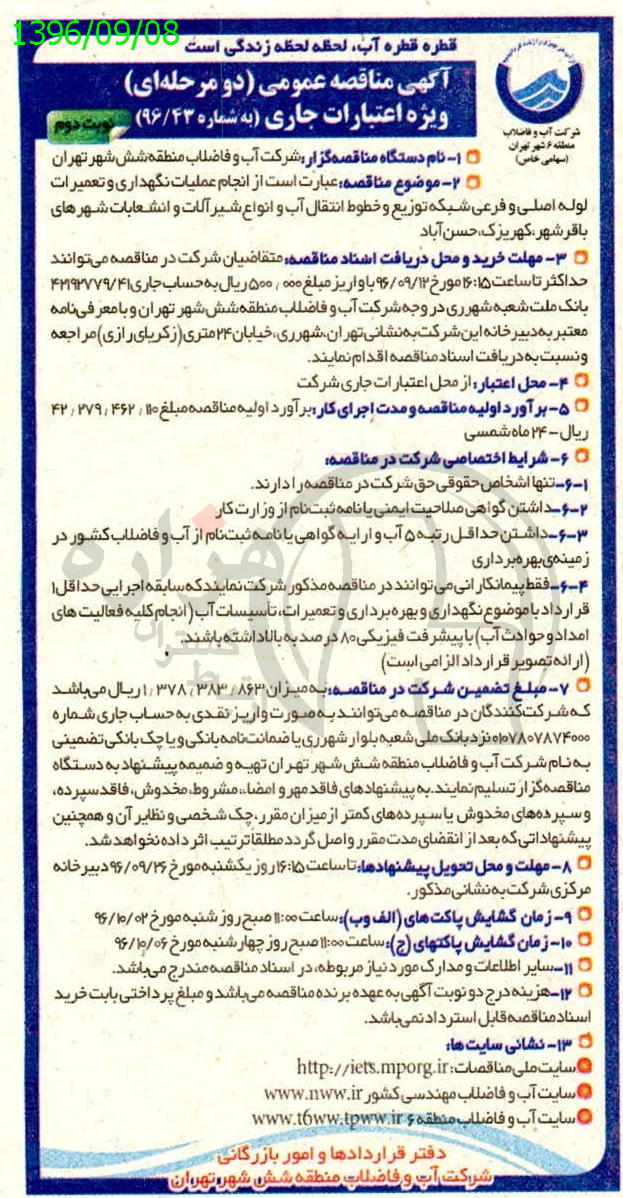 1396/09/08
قطره قطره آب، لحظه لحظه زندگی است
آگهی مناقصه عمومی (دو مرحله‌ای)
ویژه اعتبارات جاری (به شماره ۹۶/۴۳)
نوبت دوم
شرکت آب و فاضلاب
منطقه ۶ شهر تهران
(سهامی خاص)
۱- نام دستگاه مناقصه‌گزار: شرکت آب و فاضلاب منطقه شش شهر تهران
۲- موضوع مناقصه: عبارت است از انجام عملیات نگهداری و تعمیرات
لوله اصلی و فرعی شبکه توزیع و خطوط انتقال آب و انواع شیرآلات و انشعابات شهرهای
باقرشهر، کهریزک، حسن‌آباد
۳- مهلت خرید و محل دریافت اسناد مناقصه: متقاضیان شرکت در مناقصه می‌توانند
حداکثر تا ساعت ۱۶:۱۵ مورخ ۹۶/۰۹/۱۲ با واریز مبلغ ۵۰۰٫۰۰۰ ریال به حساب جاری ۴۲۱۹۲۷۷۹/۴۱
بانک ملت شعبه شهرری در وجه شرکت آب و فاضلاب منطقه شش شهر تهران و با معرفی‌نامه
معتبر به دبیرخانه این شرکت به نشانی تهران، شهرری، خیابان ۲۴متری (زکریای رازی) مراجعه
و نسبت به دریافت اسناد مناقصه اقدام نمایند.
۴- محل اعتبار: از محل اعتبارات جاری شرکت
۵- برآورد اولیه مناقصه و مدت اجرای کار: برآورد اولیه مناقصه مبلغ ۴۲٫۲۷۹٫۴۶۲٫۱۱۰
ریال - ۲۴ ماه شمسی
۶- شرایط اختصاصی شرکت در مناقصه:
۶-۱- تنها اشخاص حقوقی حق شرکت در مناقصه را دارند.
۶-۲- داشتن گواهی صلاحیت ایمنی یا نامه ثبت‌نام از وزارت کار
۶-۳- داشتن حداقل رتبه ۵ آب و ارایه گواهی یا نامه ثبت‌نام از آب و فاضلاب کشور در
زمینه‌ی بهره‌برداری
۶-۴- فقط پیمانکارانی می‌توانند در مناقصه مذکور شرکت نمایند که سابقه اجرایی حداقل ۱
قرارداد با موضوع نگهداری و بهره‌برداری و تعمیرات، تأسیسات آب (انجام کلیه فعالیت های
امداد و حوادث آب) با پیشرفت فیزیکی ۸۰ درصد به بالا داشته باشند.
(ارائه تصویر قرارداد الزامی است)
۷- مبلغ تضمین شرکت در مناقصه: به میزان ۱٫۳۷۸٫۳۸۳٫۸۶۳ ریال می‌باشد
که شرکت‌کنندگان در مناقصه می‌توانند به صورت واریز نقدی به حساب جاری شماره
۰۱۰۷۸۰۷۸۷۴۰۰۰ نزد بانک ملی شعبه بلوار شهرری یا ضمانت‌نامه بانکی و یا چک بانکی تضمینی
به نام شرکت آب و فاضلاب منطقه شش شهر تهران تهیه و ضمیمه پیشنهاد به دستگاه
مناقصه‌گزار تسلیم نمایند. به پیشنهادهای فاقد مهر و امضاء، مشروط، مخدوش، فاقد سپرده،
و سپرده‌های مخدوش یا سپرده‌های کمتر از میزان مقرر، چک شخصی و نظایر آن و همچنین
پیشنهاداتی که بعد از انقضای مدت مقرر واصل گردد مطلقاً ترتیب اثر داده نخواهد شد.
۸- مهلت و محل تحویل پیشنهادها: تا ساعت ۱۶:۱۵ روز یکشنبه مورخ ۹۶/۰۹/۲۶ دبیرخانه
مرکزی شرکت به نشانی مذکور.
۹- زمان گشایش پاکت‌های (الف و ب): ساعت ۱۱:۰۰ صبح روز شنبه مورخ ۹۶/۱۰/۰۲
۱۰- زمان گشایش پاکتهای (ج): ساعت ۱۱:۰۰ صبح روز چهارشنبه مورخ ۹۶/۱۰/۰۶
۱۱- سایر اطلاعات و مدارک مورد نیاز مربوطه، در اسناد مناقصه مندرج می‌باشد.
۱۲- هزینه درج دو نوبت آگهی به عهده برنده مناقصه می‌باشد و مبلغ پرداختی بابت خرید
اسناد مناقصه قابل استرداد نمی‌باشد.
۱۳- نشانی سایت ها:
سایت ملی مناقصات: http://iets.mporg.ir
سایت آب و فاضلاب مهندسی کشور www.nww.ir
سایت آب و فاضلاب منطقه ۶ www.t6ww.tpww.ir
دفتر قراردادها و امور بازرگانی
شرکت آب و فاضلاب منطقه شش شهر تهران